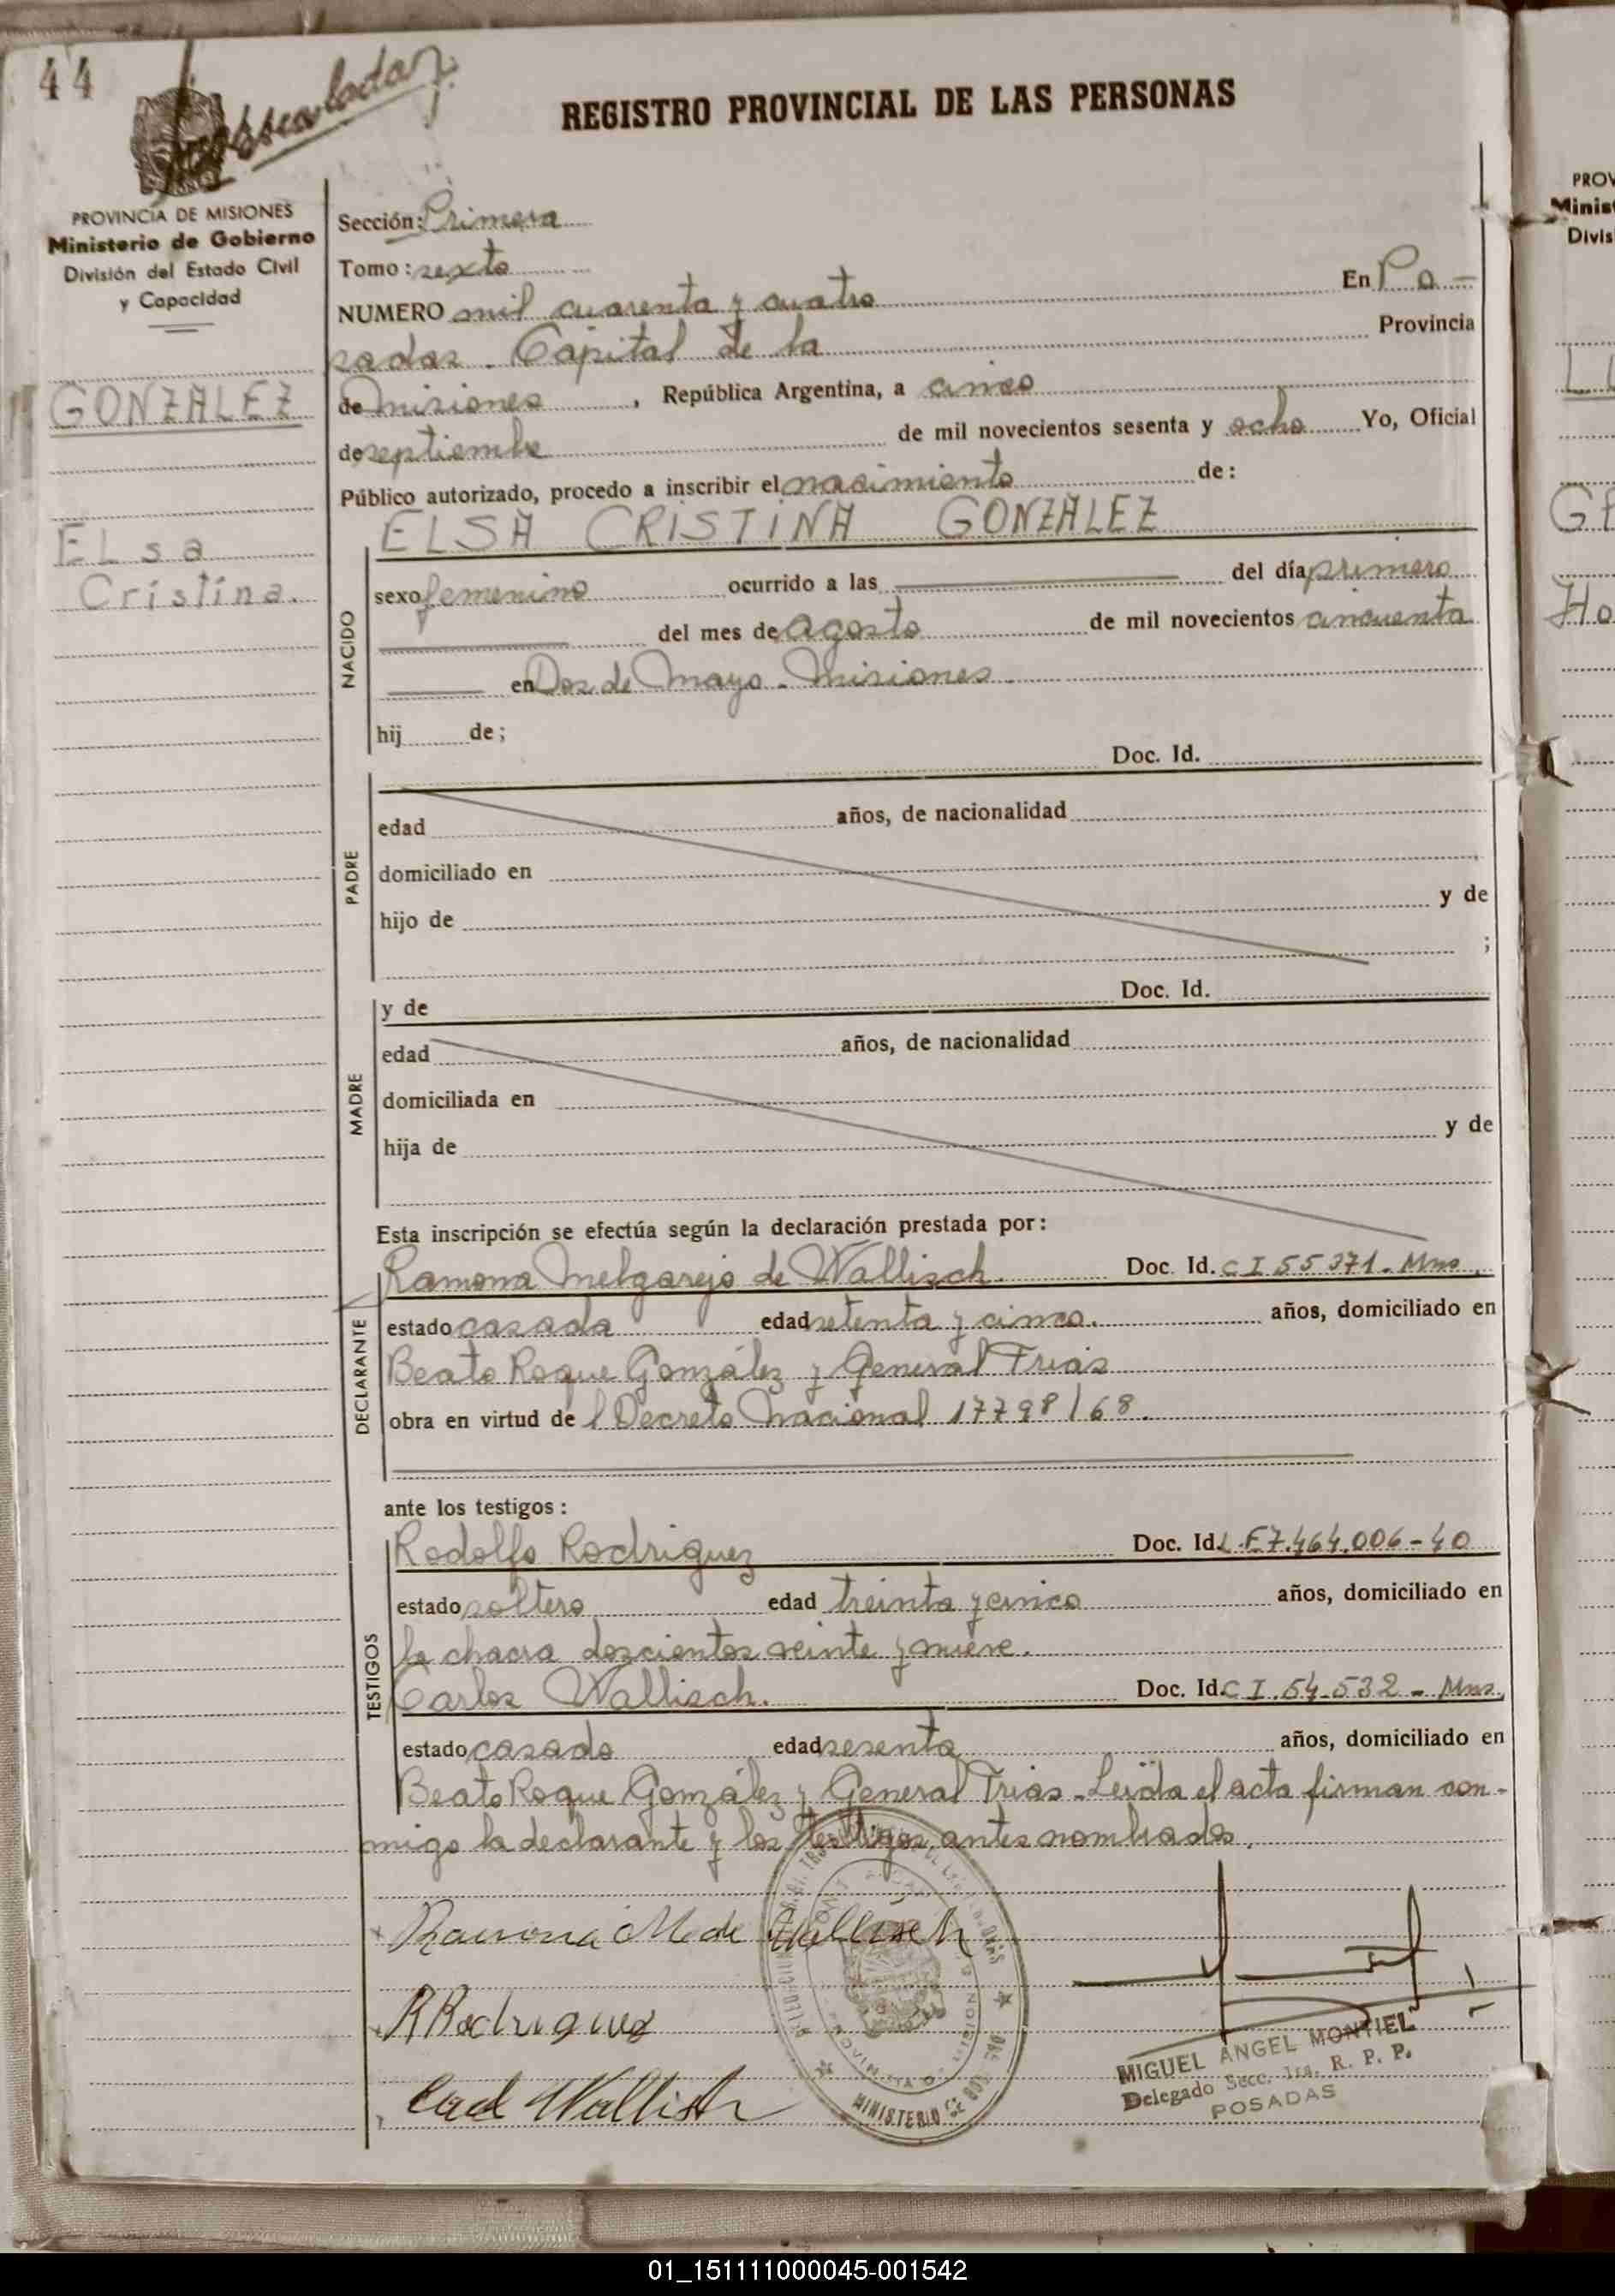 44
REGISTRO PROVINCIAL DE LAS PERSONAS
PROVINCIA DE MISIONES
Ministerio de Gobierno
División del Estado Civil
y Capacidad
GONZALEZ
ELsa
Cristina.
Sección: Primera
Tomo: sexto
NUMERO mil cuarenta y cuatro En Po-
sadas. Capital de la Provincia
de Misiones, República Argentina, a cinco
de septiembre de mil novecientos sesenta y ocho Yo, Oficial
Público autorizado, procedo a inscribir el nacimiento de:
ELSA CRISTINA GONZALEZ
NACIDO
sexo femenino ocurrido a las del día primero
del mes de Agosto de mil novecientos cincuenta
en Dos de Mayo - Misiones.
hij de;
PADRE
Doc. Id.
edad años, de nacionalidad
domiciliado en
hijo de y de
;
MADRE
y de Doc. Id.
edad años, de nacionalidad
domiciliada en
hija de y de
Esta inscripción se efectúa según la declaración prestada por:
DECLARANTE
Ramona Melgarejo de Wallisch. Doc. Id. C I 55371. Mns.
estado casada edad setenta y cinco. años, domiciliado en
Beato Roque González y General Trias
obra en virtud de l Decreto Nacional 17798/68.
ante los testigos:
TESTIGOS
Rodolfo Rodriguez Doc. Id. L.E 7.464.006-40
estado soltero edad treinta y cinco años, domiciliado en
la chacra doscientos veinte y nueve.
Carlos Wallisch. Doc. Id. C I. 54.532 - Mns.
estado casado edad sesenta años, domiciliado en
Beato Roque González y General Trias - Leída el acta firman con-
migo la declarante y los testigos antes nombrados.
Ramona M de Wallisch
R Rodriguez
Carl Wallisch
MINISTERIO DE
MIGUEL ANGEL MONTIEL
Delegado Secc. 1ra. R. P. P.
POSADAS
PROV
Minis
Divis
01_151111000045-001542